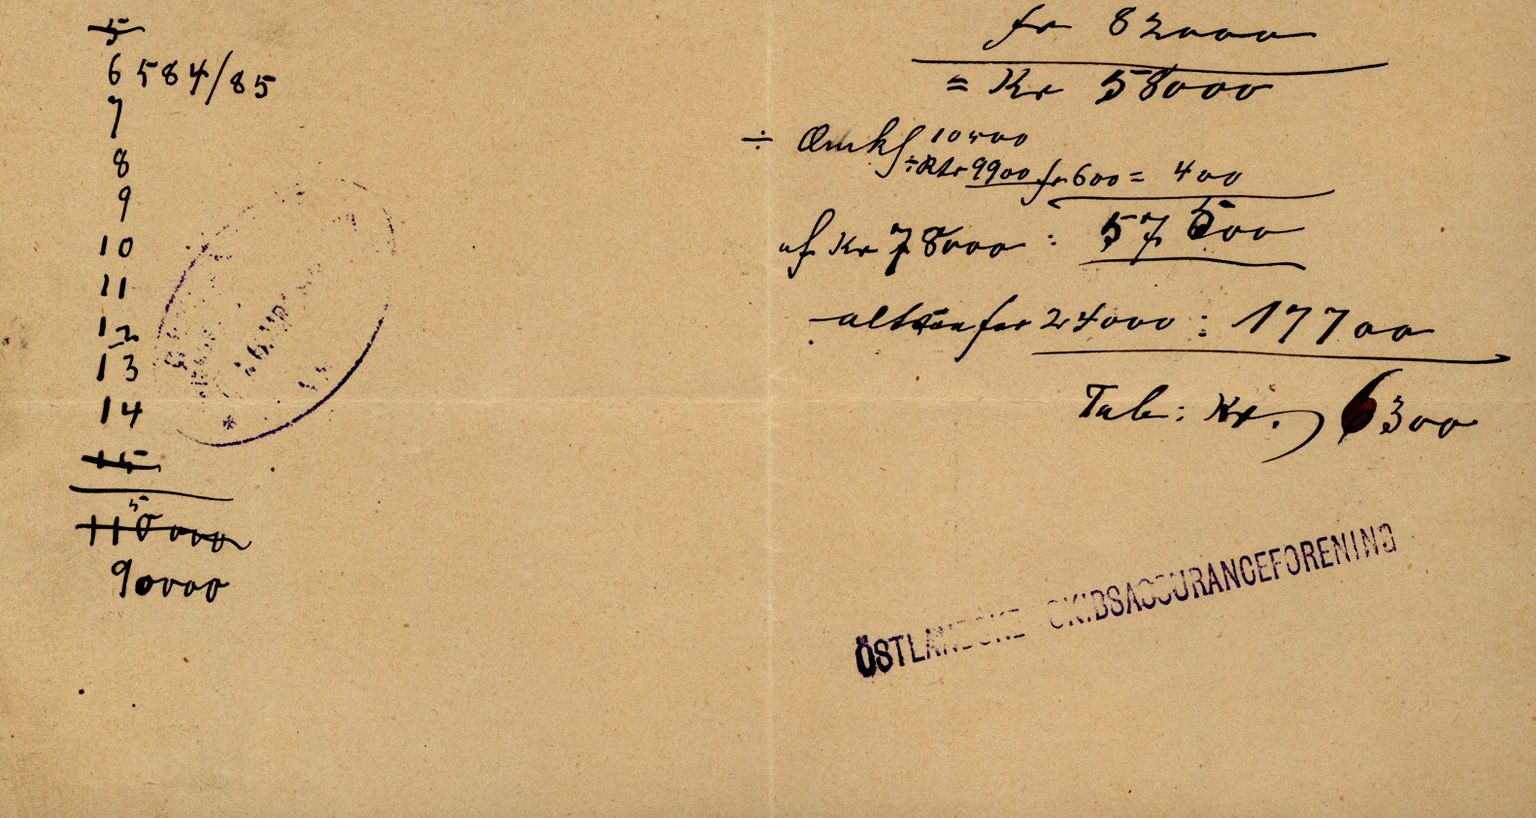 5
6 584/85
7
8
9
10
11
12
13
14
15
115000
90000
for 82000
= Kr 58000
÷ Omk 10500
÷ Rtr 9900 for 600 = 400
af Kr 78000 : 57600
altsaa for 24000 : 17700
Tab: Kr. 6300
ÖSTLANDSKE SKIBSASSURANCEFORENING